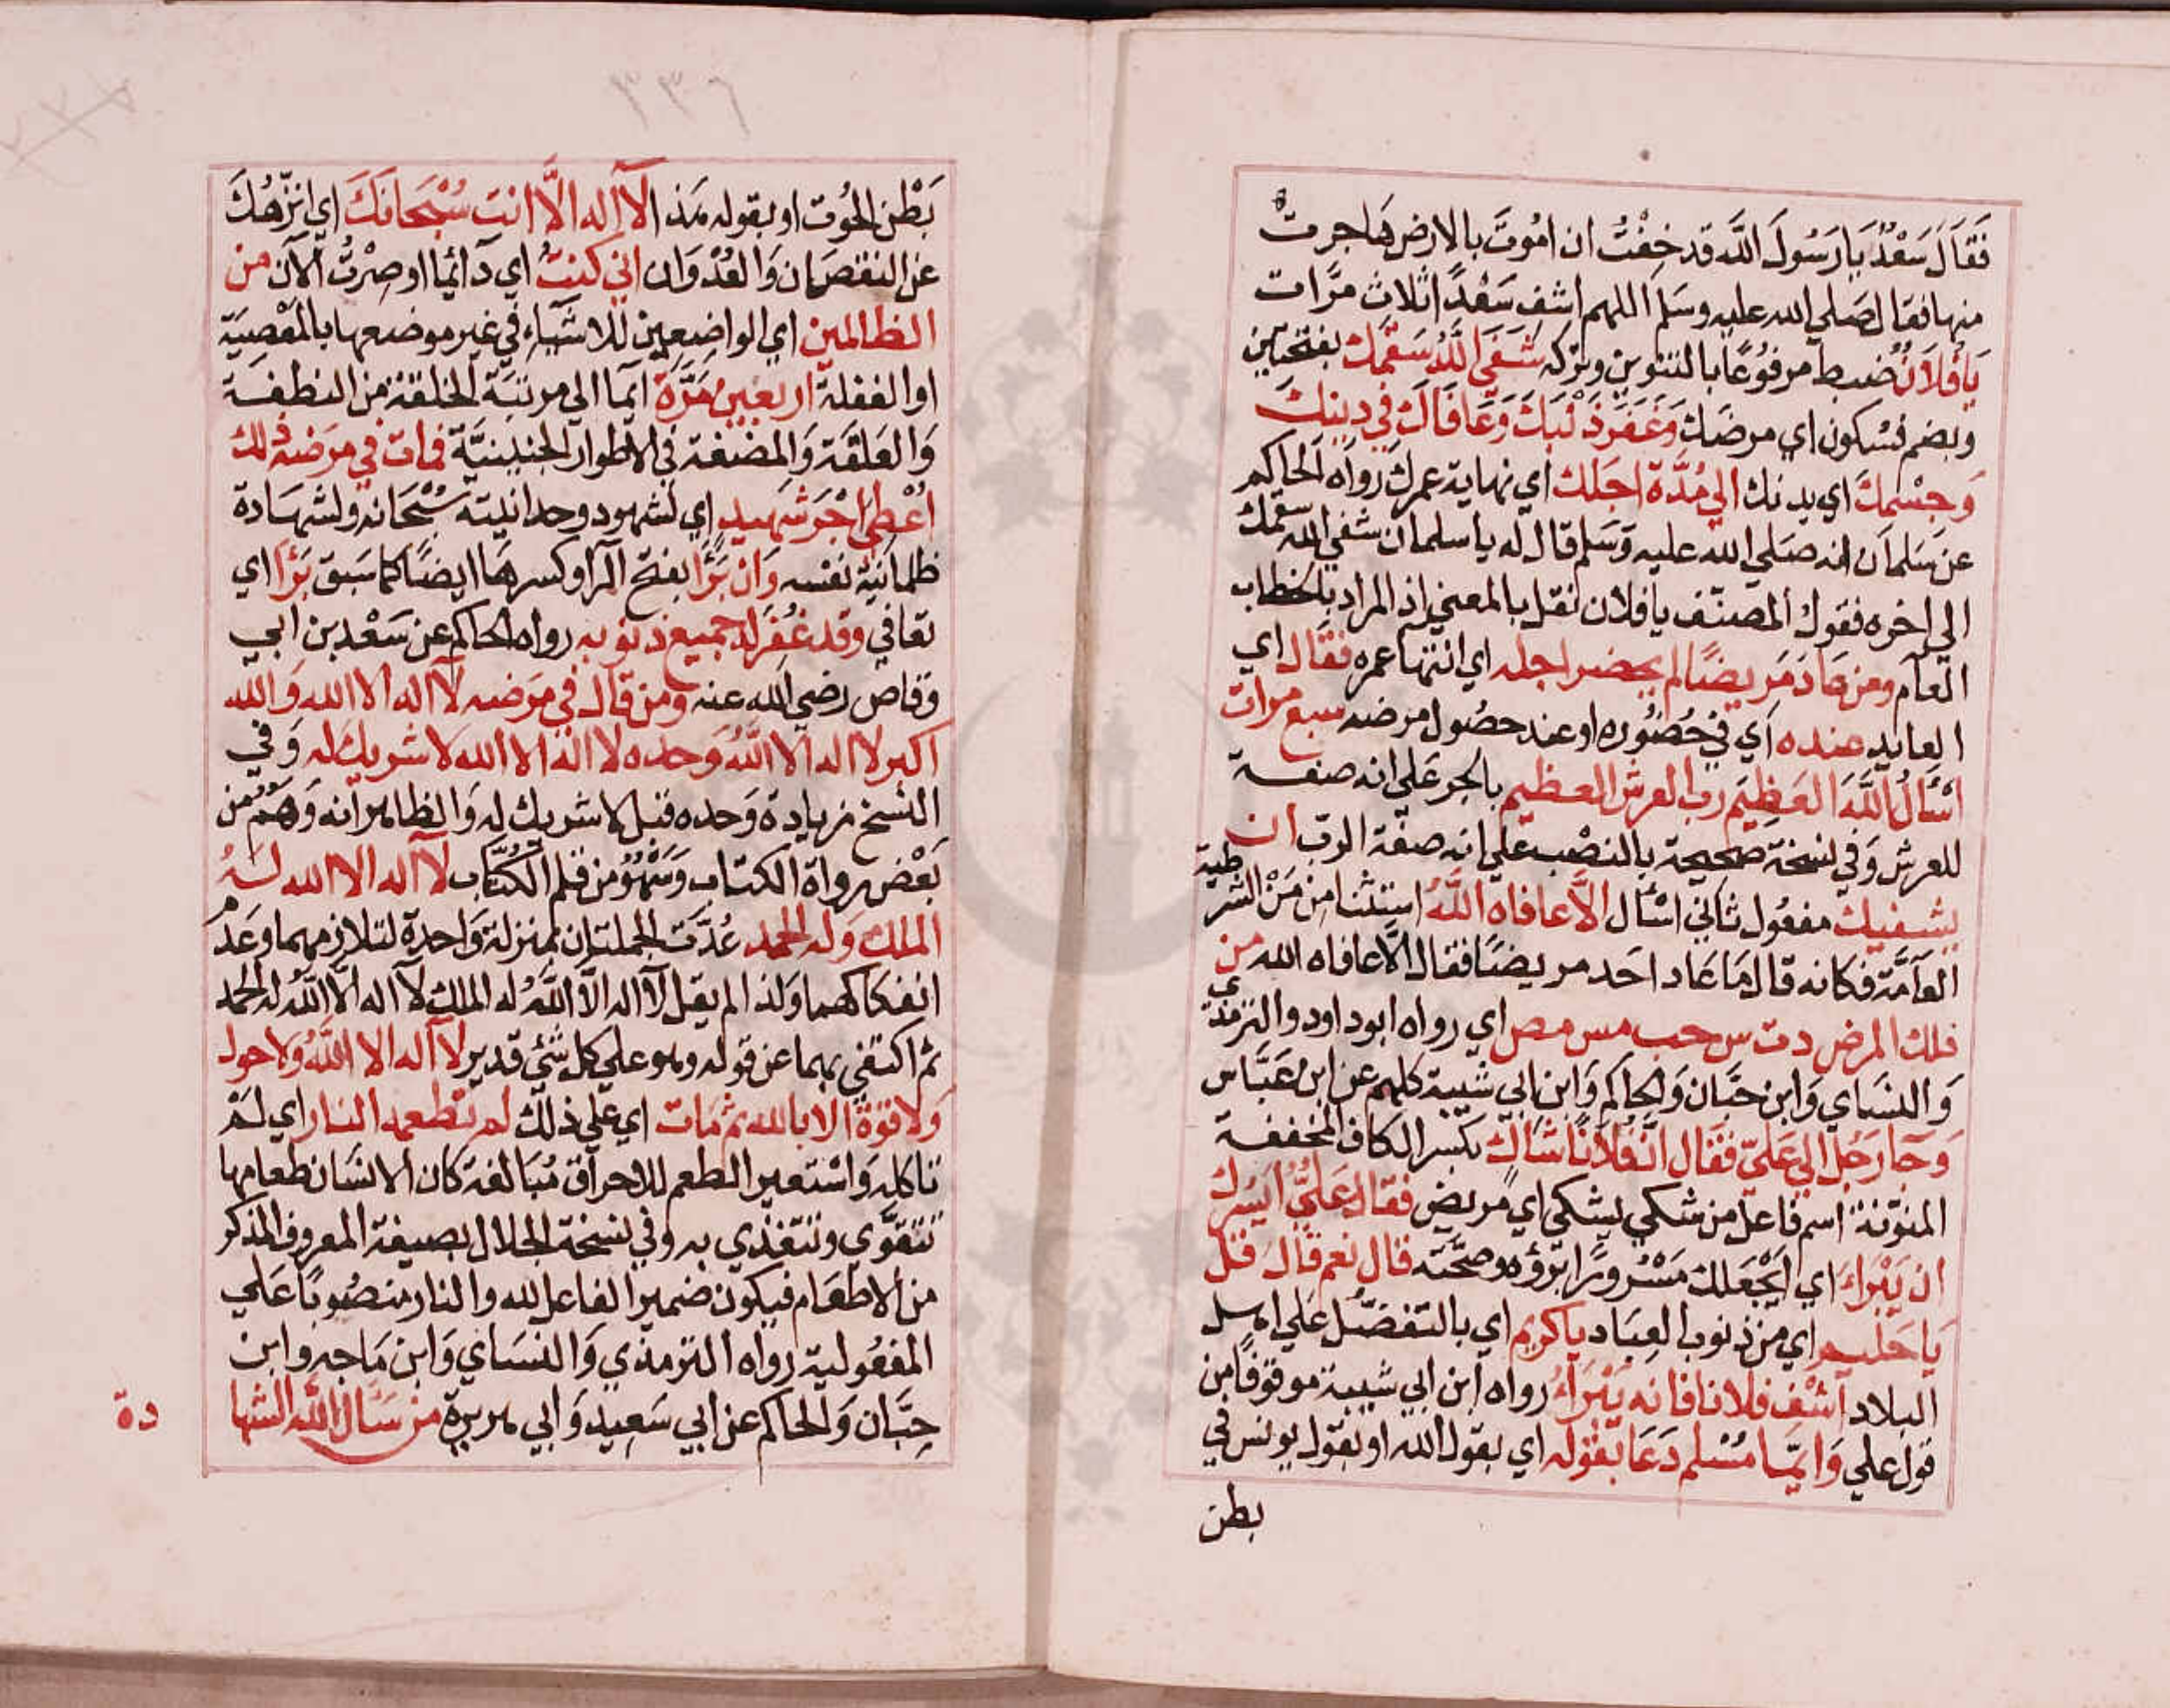 فَقَالَ سَعْدٌ يَا رَسُولَ اللَّه قد خِفْتُ ان اَمُوتَ بالارض هَاجرت
منها فقال صَلي الله عليه وسَلم اللهم اشف سَعْدًا ثلاث مرَّات
يَا فُلَانُ ضبط مرفوُعًا بالتنوين وتركه شَفَي اللَّهُ سَقَمَك بفتحتين
وبضم فسكون اي مرضَك وَغَفَرَ ذَنْبَكَ وَعَافَاكَ في دينك
وَجِسْمِكَ اي بدنك الي مُدَّة اجَلك اي نهاية عمرك رواه الحاكم
عن سَلمان انه صَلي الله عليه وَسَلم قال له يا سلمان شفي الله سقمك
الي اخره فقول المصنّف يا فلان نقل بالمعني اذ المراد بالخطاب
العآم ومن عَادَ مَريضًا لم يحضر اجله اي انتها عمره فقَال اي
العايد عنده اي في حُضوره او عند حصُول مرضه سبع مرات
اَسْأَلُ اللَّهَ العَظِيَم رب العرش العظيم بالجر عَلي انه صفة
للعرش وَفي نسخة صحيحة بالنصْب عَلي انه صفة الرب ان
يشفيك مفعُول ثاني اسْأل الَّا عافاهُ اللَّهُ استثنا من مَنْ الشرطية
العآمَّة فكانه قال مَا عَاد احَد مريضًا فقال الَّا عافاه الله من
ذلك المرض دت س حب مس مص اي رواه ابو داود والترمذي
وَالنسَاي وَابن حبَّان وَالحاكم وَابن ابي شيبة كلهم عن ابن عَبَّاس
وَجَا رَجُل الي عَليّ فَقَال انَّ فُلَانًا شَاكٍ بكسر الكاف المخففة
المنوّنة اسم فاعل من شكي يشكي اي مريض فقال عَليٌّ اَيَسُرك
ان يَبْرَاءَ اي اَيَجْعَلك مَسْرورًا برؤه وصحّته قال نعم قَالَ قل
يَا حَليم اي من ذنوب العِبَاد يا كريم اي بالتفضُّل عَلي اهل
البلاد اشْفِ فلانا فانه يَبْرَاءُ رواه ابن ابي شيبة موقوفًا من
قول علي وَايّمَا مُسْلم دَعَا بقوْله اي بقول الله او بقول يونس في
بطن
٣٣٦
بَطْن الحُوت او بقوله هَذا لآ اله الَّا انت سُبْحَانَكَ اي انزّهُكَ
عن النقصَان وَالعُدْوَان اني كنتُ اي دآئما او صِرْتُ الآن من
الظالمين اي الواضِعين للاشَيآء في غير موضعها بالمَعْصِيَة
او الغفلة اربعين مَرَّة ايمآ الي مرتبَة الخلقة من النطفة
وَالعَلَقَة وَالمضغة في الاطوار الجنينيَّة فمات في مرَضه ذلك
اُعْطِيَ اَجْرَ شَهِيد اي لشهود وحدانيته سُبْحَانه ولشهَادة
ظلمانيّة نفسه وَان بَرَأَ بفتح الرآ وكسرهَا ايضًا كما سَبَق بَرَأَ اي
تعافي وقد غُفِرَ له جميع ذنوبه رواه الحاكم عن سَعْد بن ابي
وقاص رضي الله عنه وَمن قَال في مرَضه لآ اله الا الله وَالله
اكبر لا اله الا اللَّهُ وَحده لا اله الا الله لا شريك له وَفي
النسَخ زيادة وَحده قبل لا شريك له وَالظاهر انه وَهَمٌ من
بَعْض رواة الكتاب وَسَهْوٌ من قلم الكُتَّاب لآ اله الا الله لهُ
الملك وَله الحمد عُدَّت الجملتان بمنزلة وَاحدة لتلازمهما وعَدم
انفكاكهما وَلذا لم يقل لآ اله الَّا اللَّهُ له الملك لآ اله الَّا اللَّهُ له الحمد
ثم اكتفي بهما عن قوله وهو علي كل شَئي قدير لآ اله الا اللَّهُ وَلا حول
وَلا قوَّة الا بالله ثم مَات اي عَلي ذلك لم تطعمه النار اي لَمْ
تاكله وَاسْتعير الطعم للاحرآق مُبَالغة كان الانسَان طعامها
تتقوَّي وتتغذي به وفي نسخة الجلال بصيغة المعروف المذكر
من الاطعَام فيكون ضمير الفاعل لله والنار منصُوبًا عَلي
المفعُولية رواه الترمذي وَالنسَاي وَابن مَاجه وابن
حِبَّان وَالحاكم عن ابي سَعِيد وَابي هريرة من سَأل اللَّه الشها
دة